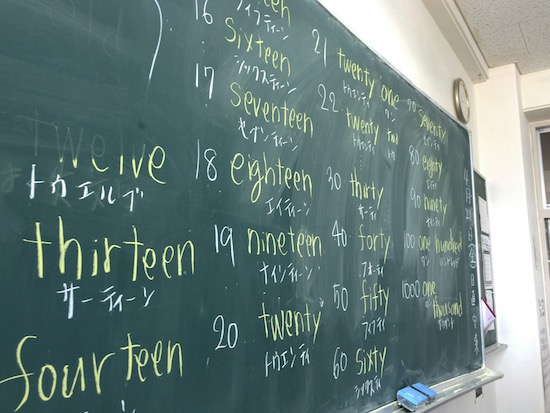 twelve
トゥエルブ
thirteen
サーティーン
fourteen
16
sixteen
シックスティーン
17
seventeen
セブンティーン
18 eighteen
エイティーン
19 nineteen
ナインティーン
20 twenty
トゥエンティ
21 twenty one
トゥエンティ ワン
22 twenty two
30 thirty
サーティ
40 forty
フォーティ
50 fifty
フィフティ
60 sixty
シックスティ
seventy
80 eighty
エイティ
90 ninety
100 one hundred
ワン ハンドレッド
1000 one
thousand